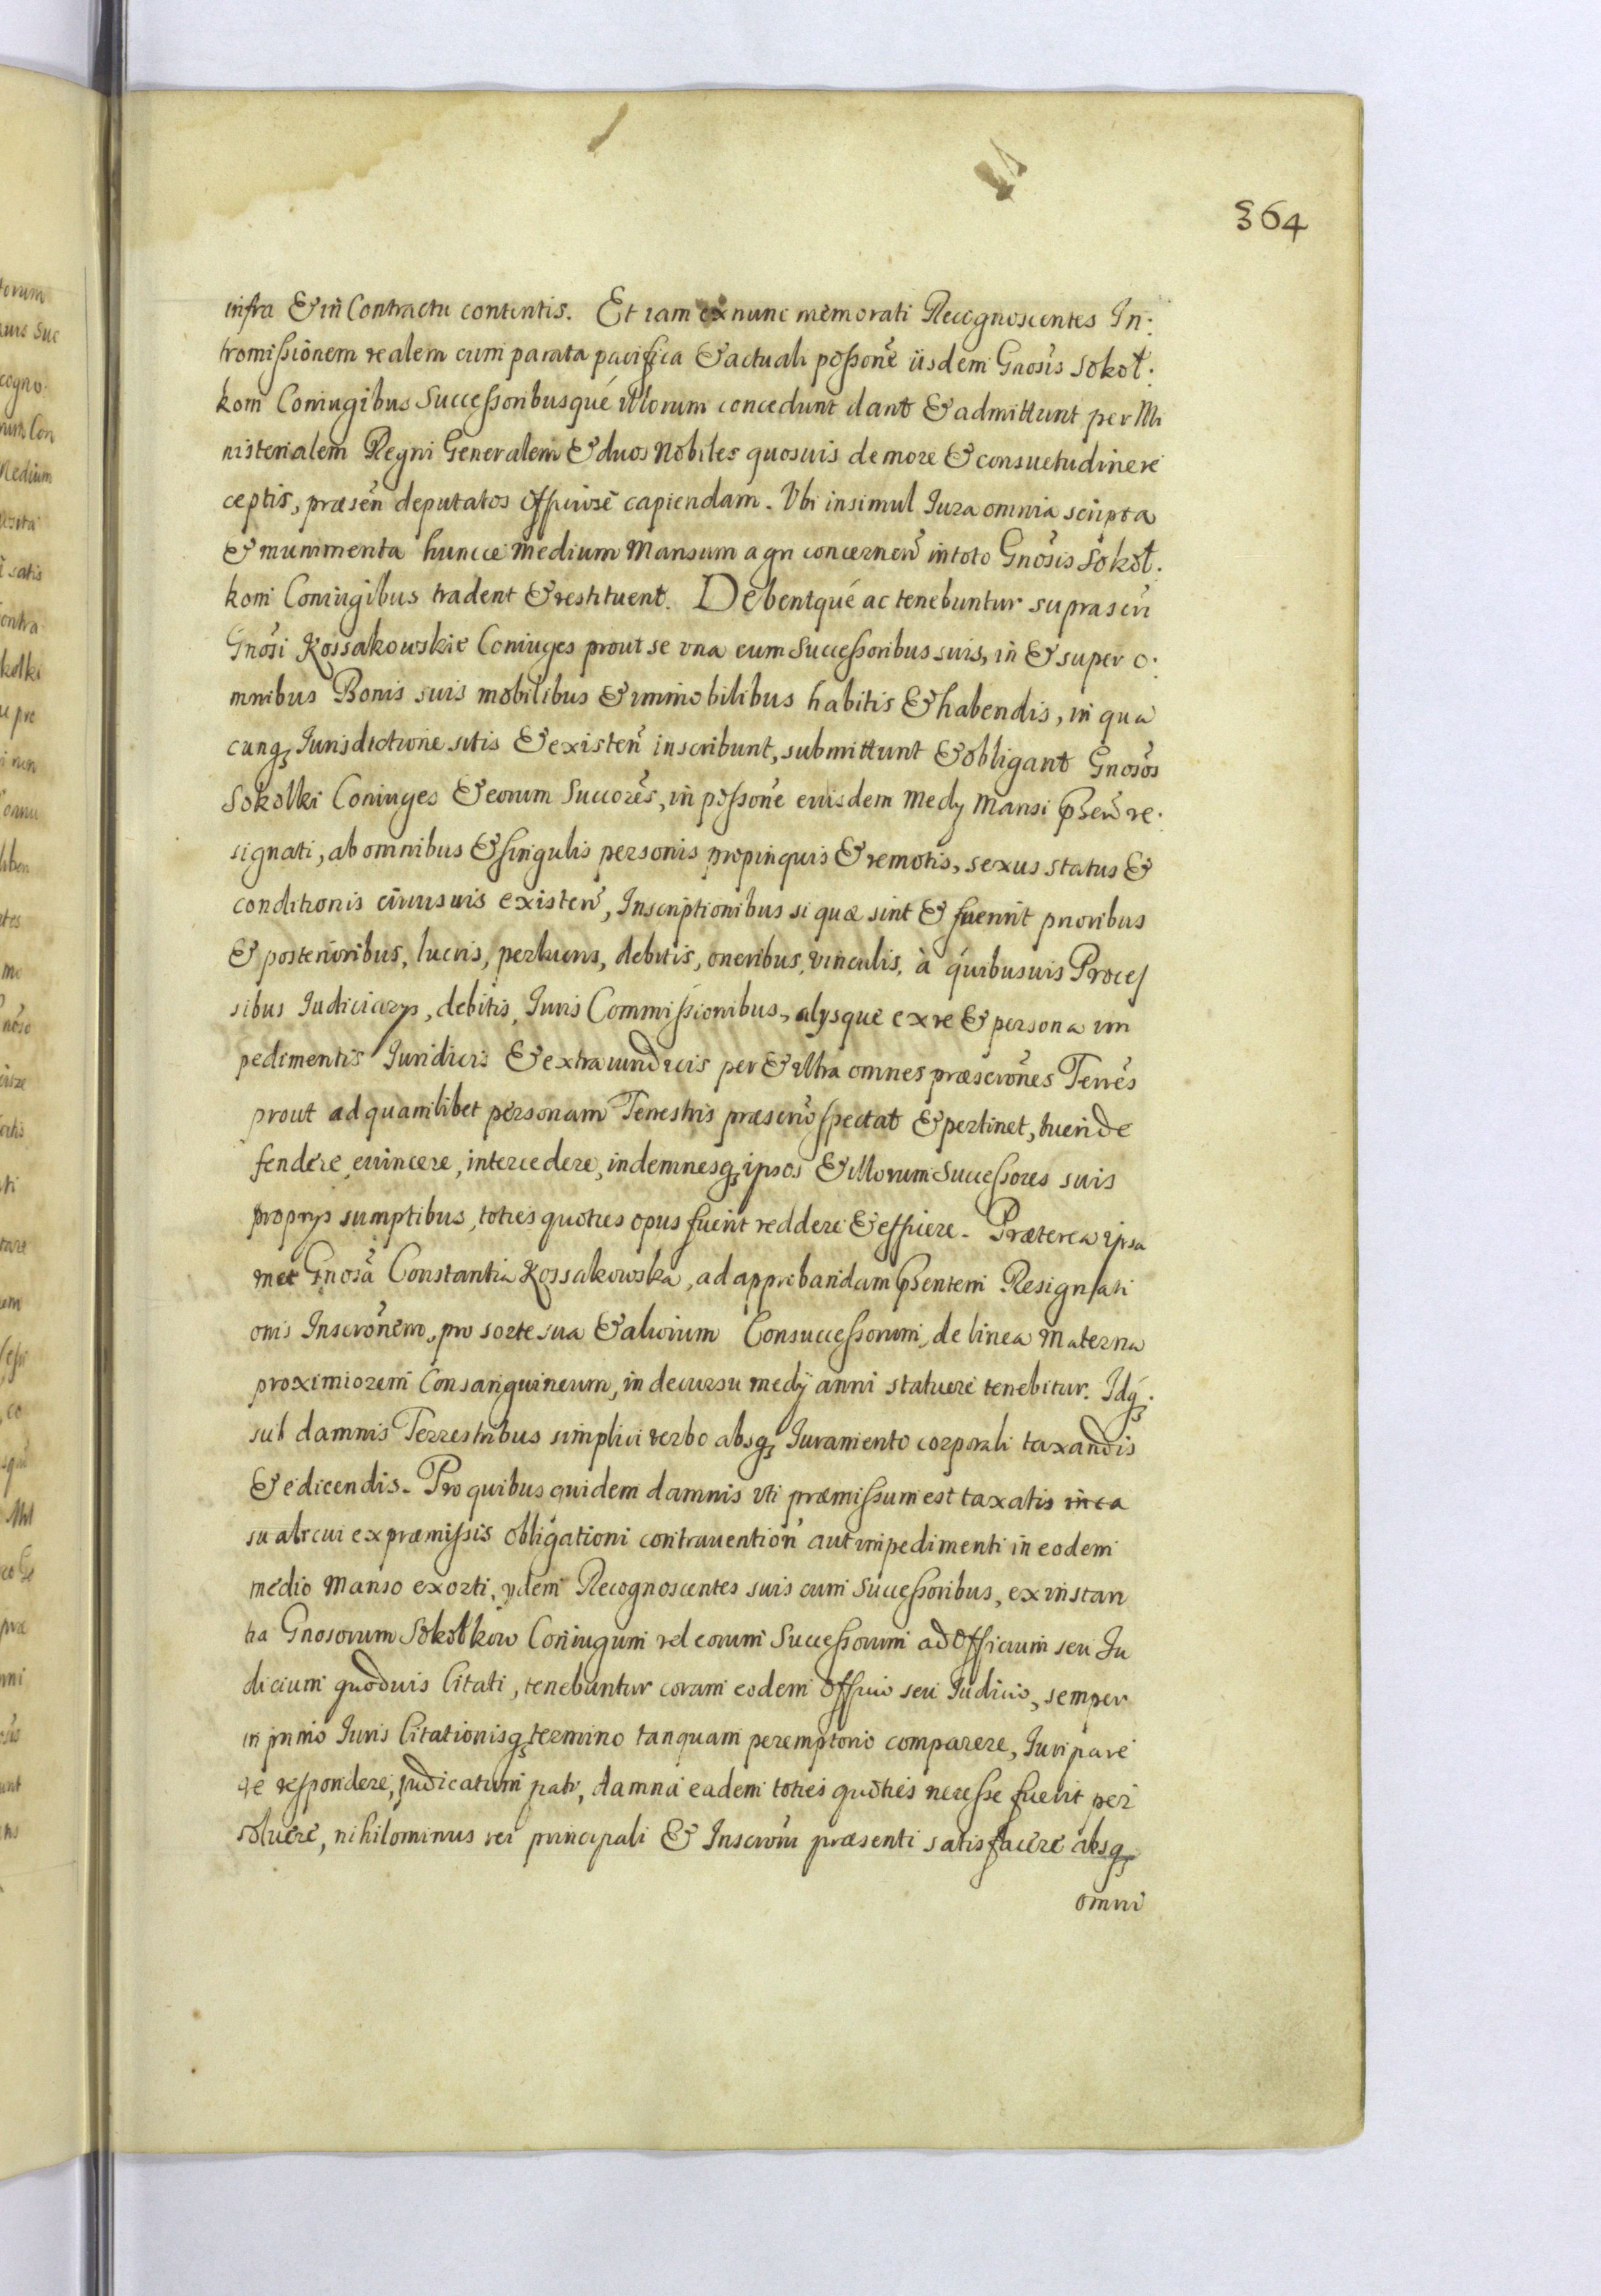 364
infra & in Contractu contentis. Et iam ex nunc memorati Recognoscentes In:
tromissionem realem cum parata pacifica & actuali possone iisdem Gnosis Sokoł:
kom Coniugibus Successoribusque illorum concedunt dant & admittunt per Mi
nisterialem Regni Generalem & duos Nobiles quosuis de more & consuetudine re
ceptis, præsen deputatos officiose capiendam. Vbi insimul Iura omnia scripta
& munimenta huncce medium Mansum agri concernen in toto Gnosis Sokoł:
kom Coniugibus tradent & restituent. Debentque ac tenebuntur suprascri
Gnosi Kossakowskie Coniuges prout se vna cum Successoribus suis, in & super o:
mnibus Bonis suis mobilibus & immobilibus habitis & habendis, in qua
cunq, Iurisdictione sitis & existen inscribunt, submittunt & obligant Gnosos
Sokolki Coniuges & eorum Succores, in possone eiusdem Medy Mansi psen re:
signati, ab omnibus & singulis personis propinquis & remotis, sexus status &
conditionis cuiusuis existen, Inscriptionibus si quæ sint & fuerint prioribus
& posterioribus, lucris, perlucris, debitis, oneribus, vinculis, à quibusuis Proces
sibus Iudiciarys, debitis, Iuris Commissionibus, alysque ex re & persona im
pedimentis Iuridicis & extraiuridicis per & vltra omnes præscrones Terres
prout ad quamlibet personam Terrestris præscrio spectat & pertinet, tueri de
fendere, euincere, intercedere, indemnesq, ipsos & illorum Successores suis
proprys sumptibus, toties quoties opus fuerit reddere & efficere. Præterea ipsa
met Gnosa Constantia Kossakowska, ad approbandam psentem Resignati
onis Inscronem, pro sorte sua & aliorum Consuccessorum, de linea Materna
proximiorem Consanguineum, in decursu medy anni statuere tenebitur. Idq,
sub damnis Terrestribus simplici verbo absq, Iuramento corporali taxandis
& edicendis. Pro quibus quidem damnis vti præmissum est taxatis in ca
su alicui ex præmissis obligationi contrauention aut impedimenti in eodem
medio Manso exorti, ydem Recognoscentes suis cum Successoribus, ex instan
tia Gnosorum Sokołkow Coniugum vel eorum Successorum ad Officium seu Iu
dicium quoduis Citati, tenebuntur coram eodem Officio seu Iudicio, semper
in primo Iuris Citationisq, termino tanquam peremptorio comparere, Iuri pare
re respondere, iudicatum pati, damna eadem toties quoties necesse fuerit per
soluere, nihilominus rei principali & Inscroni præsenti satisfacere absq,
omni